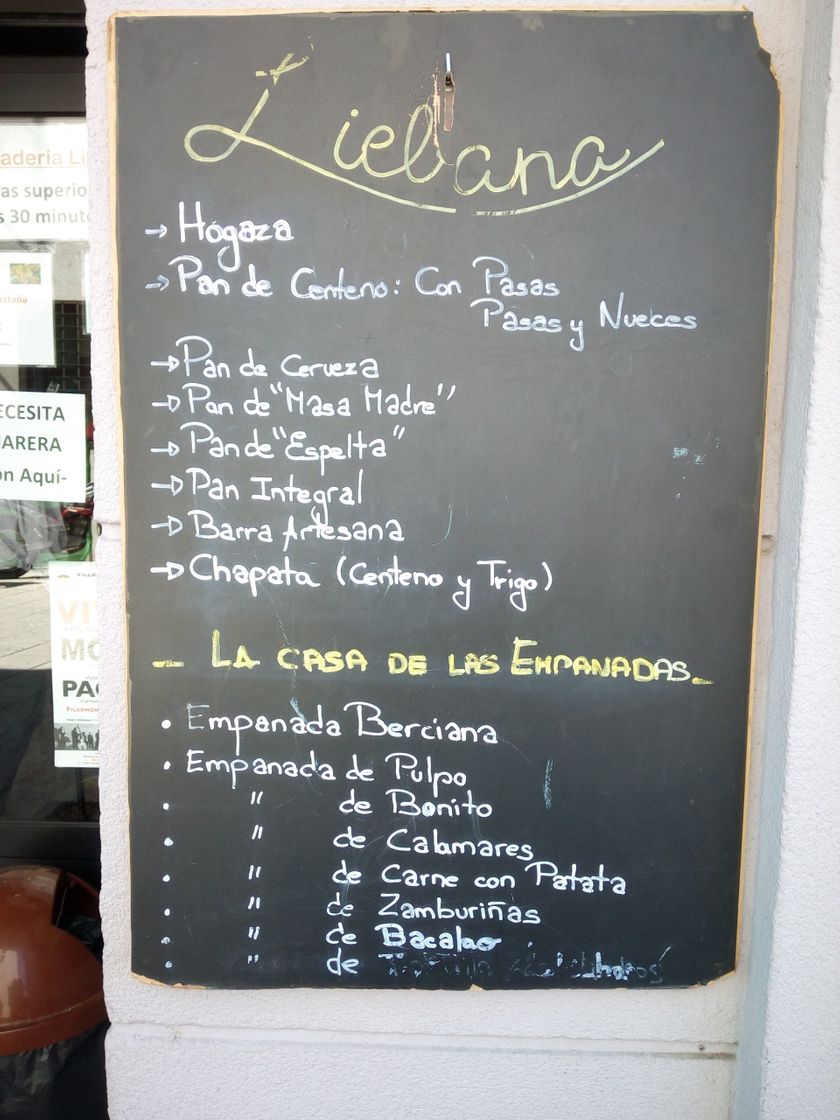 Liebana
→ Hogaza
→ Pan de Centeno: Con Pasas
Pasas y Nueces
→ Pan de Cerveza
→ Pan de "Masa Madre"
→ Pan de "Espelta"
→ Pan Integral
→ Barra Artesana
→ Chapata (Centeno y Trigo)
- LA CASA DE LAS EMPANADAS -
• Empanada Berciana
• Empanada de Pulpo
• " de Bonito
• " de Calamares
• " de Carne con Patata
• " de Zamburiñas
• " de Bacalao
• " de
adería Li
as superio
s 30 minut
astaña
ECESITA
ARERA
ón Aquí-
VILLA
VI
MO
PA
FILARMON